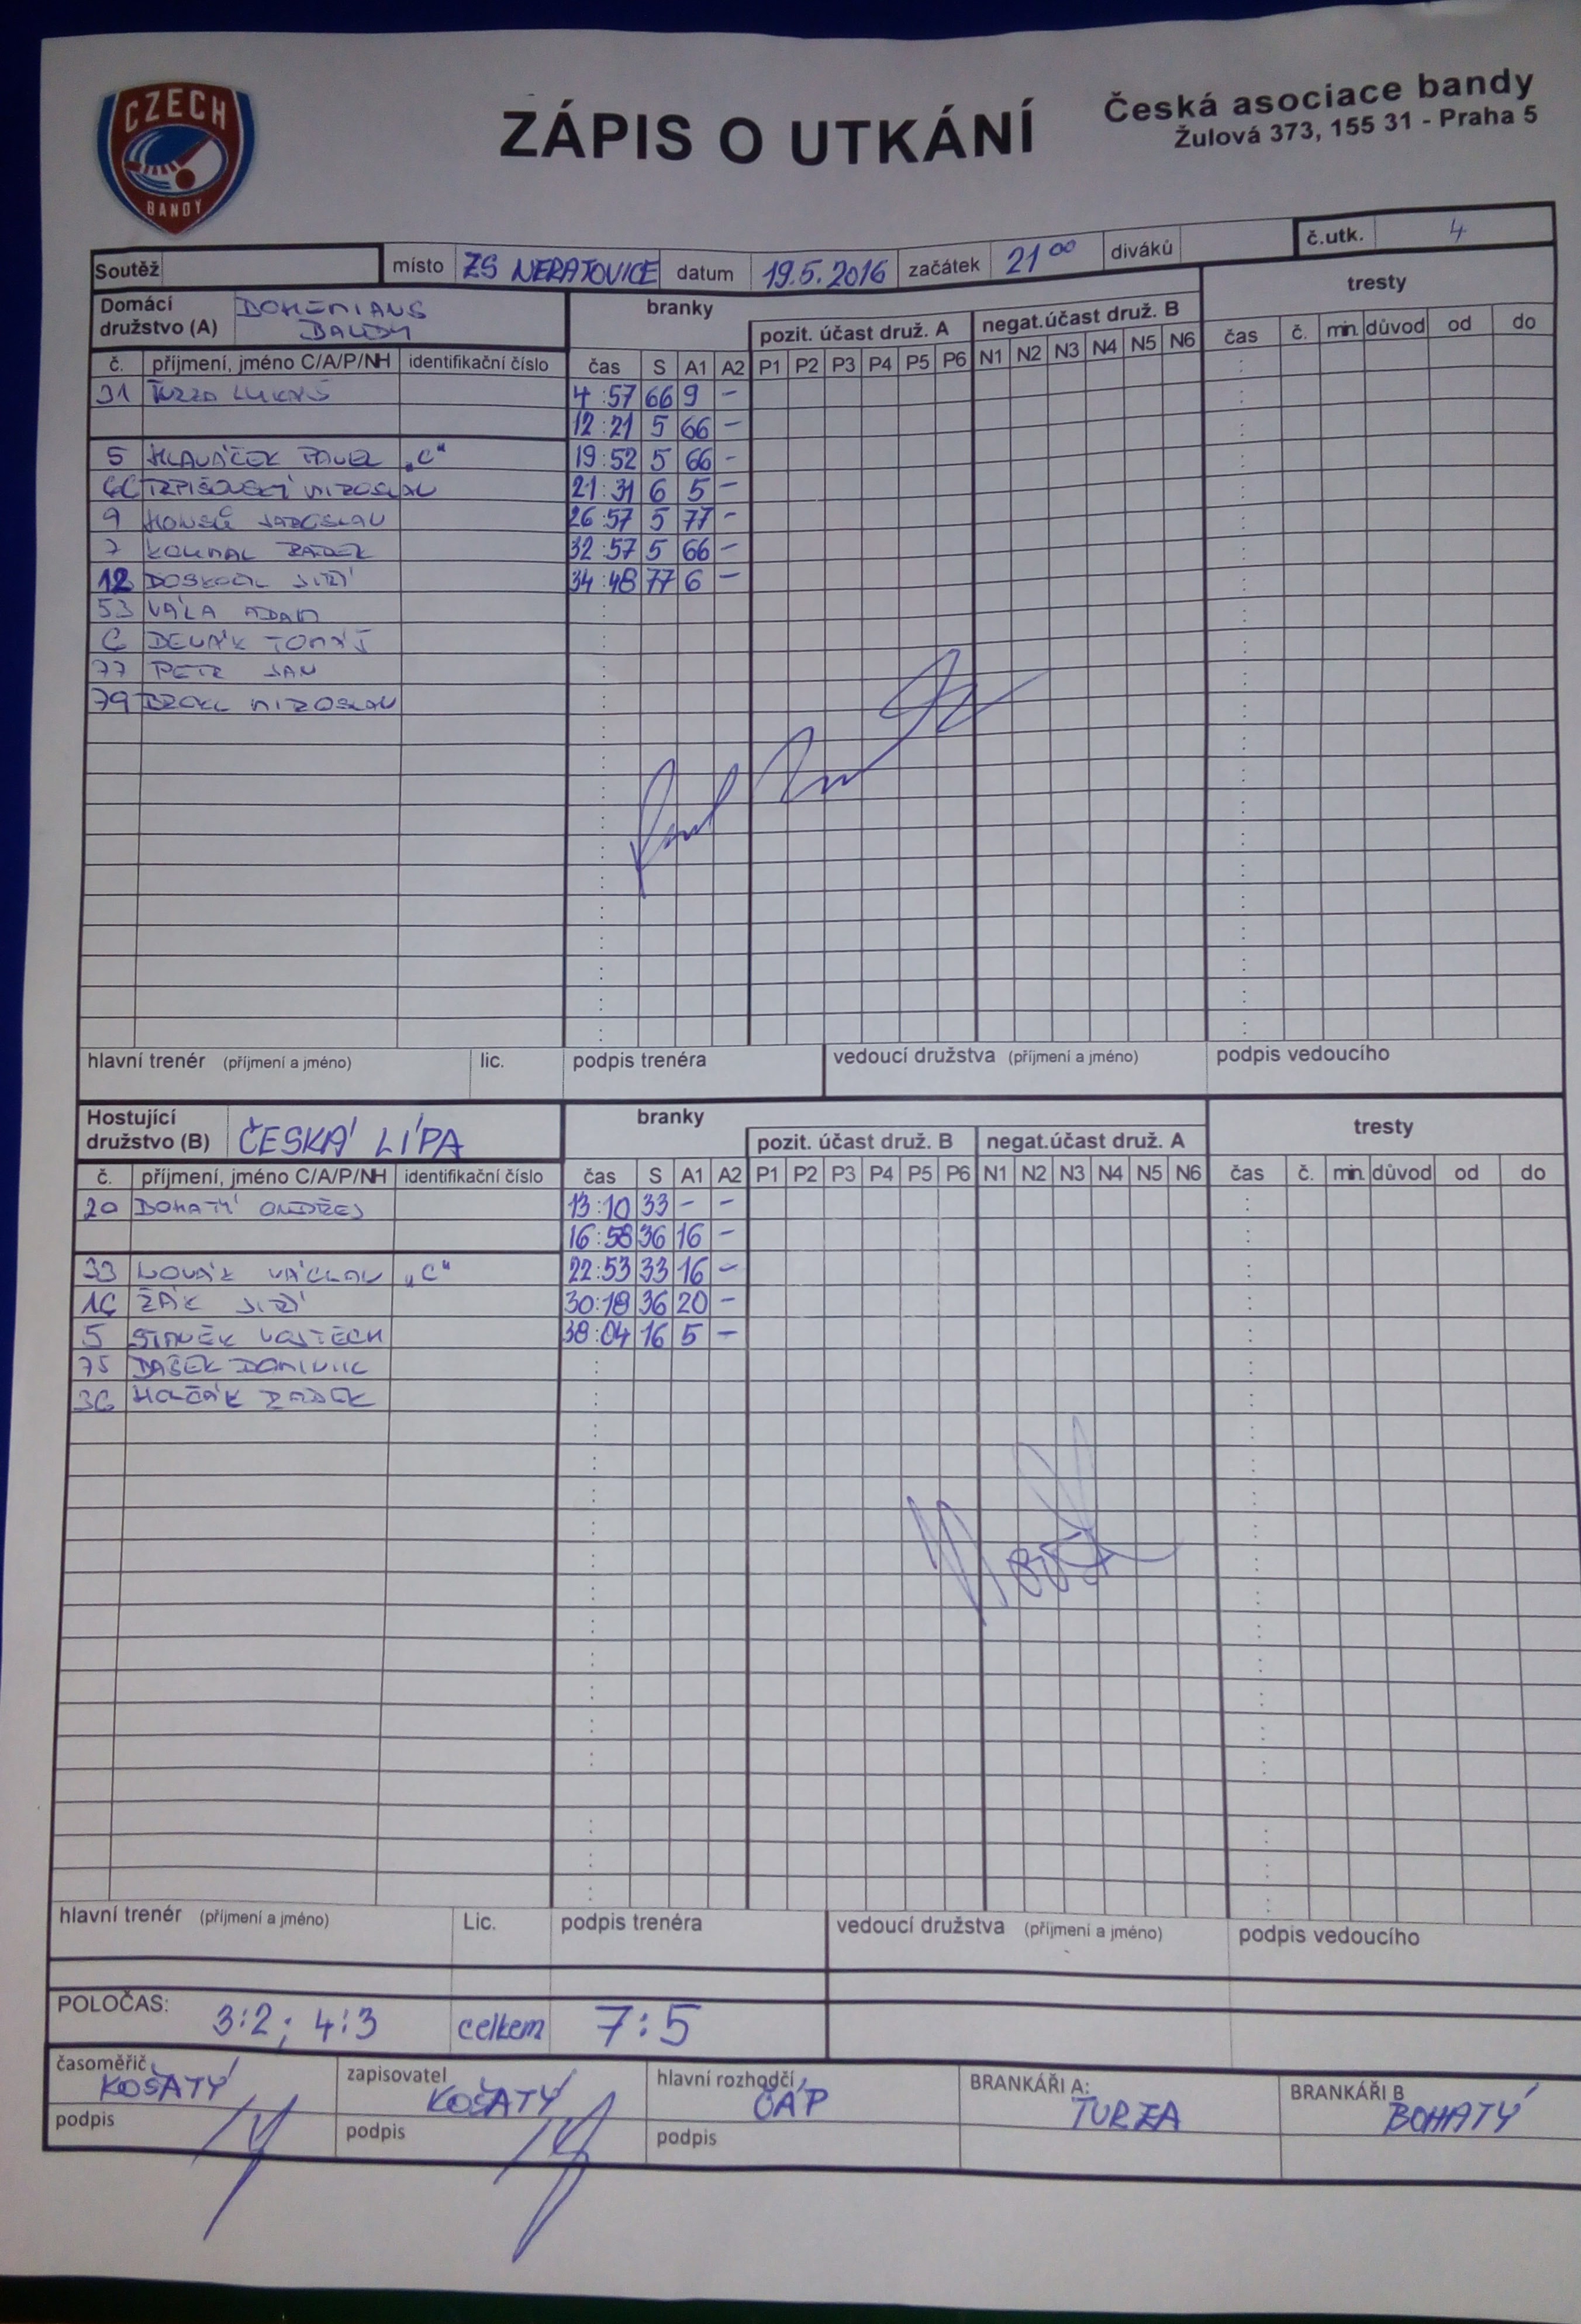 CZECH
BANDY
ZÁPIS O UTKÁNÍ
Česká asociace bandy
Žulová 373, 155 31 - Praha 5
Soutěž místo ZS NERATOVICE datum 19.5.2016 začátek 21 00 diváků č.utk. 4
Domácí družstvo (A) BOHEMIANS BANDY branky tresty
pozit. účast druž. A negat.účast druž. B
č. příjmení, jméno C/A/P/NH identifikační číslo čas S A1 A2 P1 P2 P3 P4 P5 P6 N1 N2 N3 N4 N5 N6 čas č. min. důvod od do
31 TURZA LUKÁŠ 4:57 66 9 -
12:21 5 66 -
5 HLAVÁČEK PAVEL "C" 19:52 5 66 -
66 TRPIŠOVSKÝ MIROSLAV 21:31 6 5 -
9 JAROSLAV 26:57 5 77 -
7 KOUMAL RADEK 32:57 5 66 -
12 DOSKOČIL JIŘÍ 34:48 77 6 -
53 VÁLA ADAM
6 TOMÁŠ
77 PETR JAN
79 MIROSLAV
hlavní trenér (příjmení a jméno) lic. podpis trenéra vedoucí družstva (příjmení a jméno) podpis vedoucího
Hostující družstvo (B) ČESKÁ LÍPA branky tresty
pozit. účast druž. B negat.účast druž. A
č. příjmení, jméno C/A/P/NH identifikační číslo čas S A1 A2 P1 P2 P3 P4 P5 P6 N1 N2 N3 N4 N5 N6 čas č. min. důvod od do
20 BOHATÝ ONDŘEJ 13:10 33 - -
16:58 36 16 -
33 NOVÁK VÁCLAV "C" 22:53 33 16 -
16 ŽÁK JIŘÍ 30:18 36 20 -
5 STANĚK VOJTĚCH 38:04 16 5 -
75 DAŠEK DOMINIK
36 HOLČÁK RADEK
Novák
hlavní trenér (příjmení a jméno) Lic. podpis trenéra vedoucí družstva (příjmení a jméno) podpis vedoucího
POLOČAS: 3:2; 4:3 celkem 7:5
časoměřič KOŠATÝ zapisovatel KOŠATÝ hlavní rozhodčí ČÁP BRANKÁŘI A: TURZA BRANKÁŘI B BOHATÝ
podpis podpis podpis